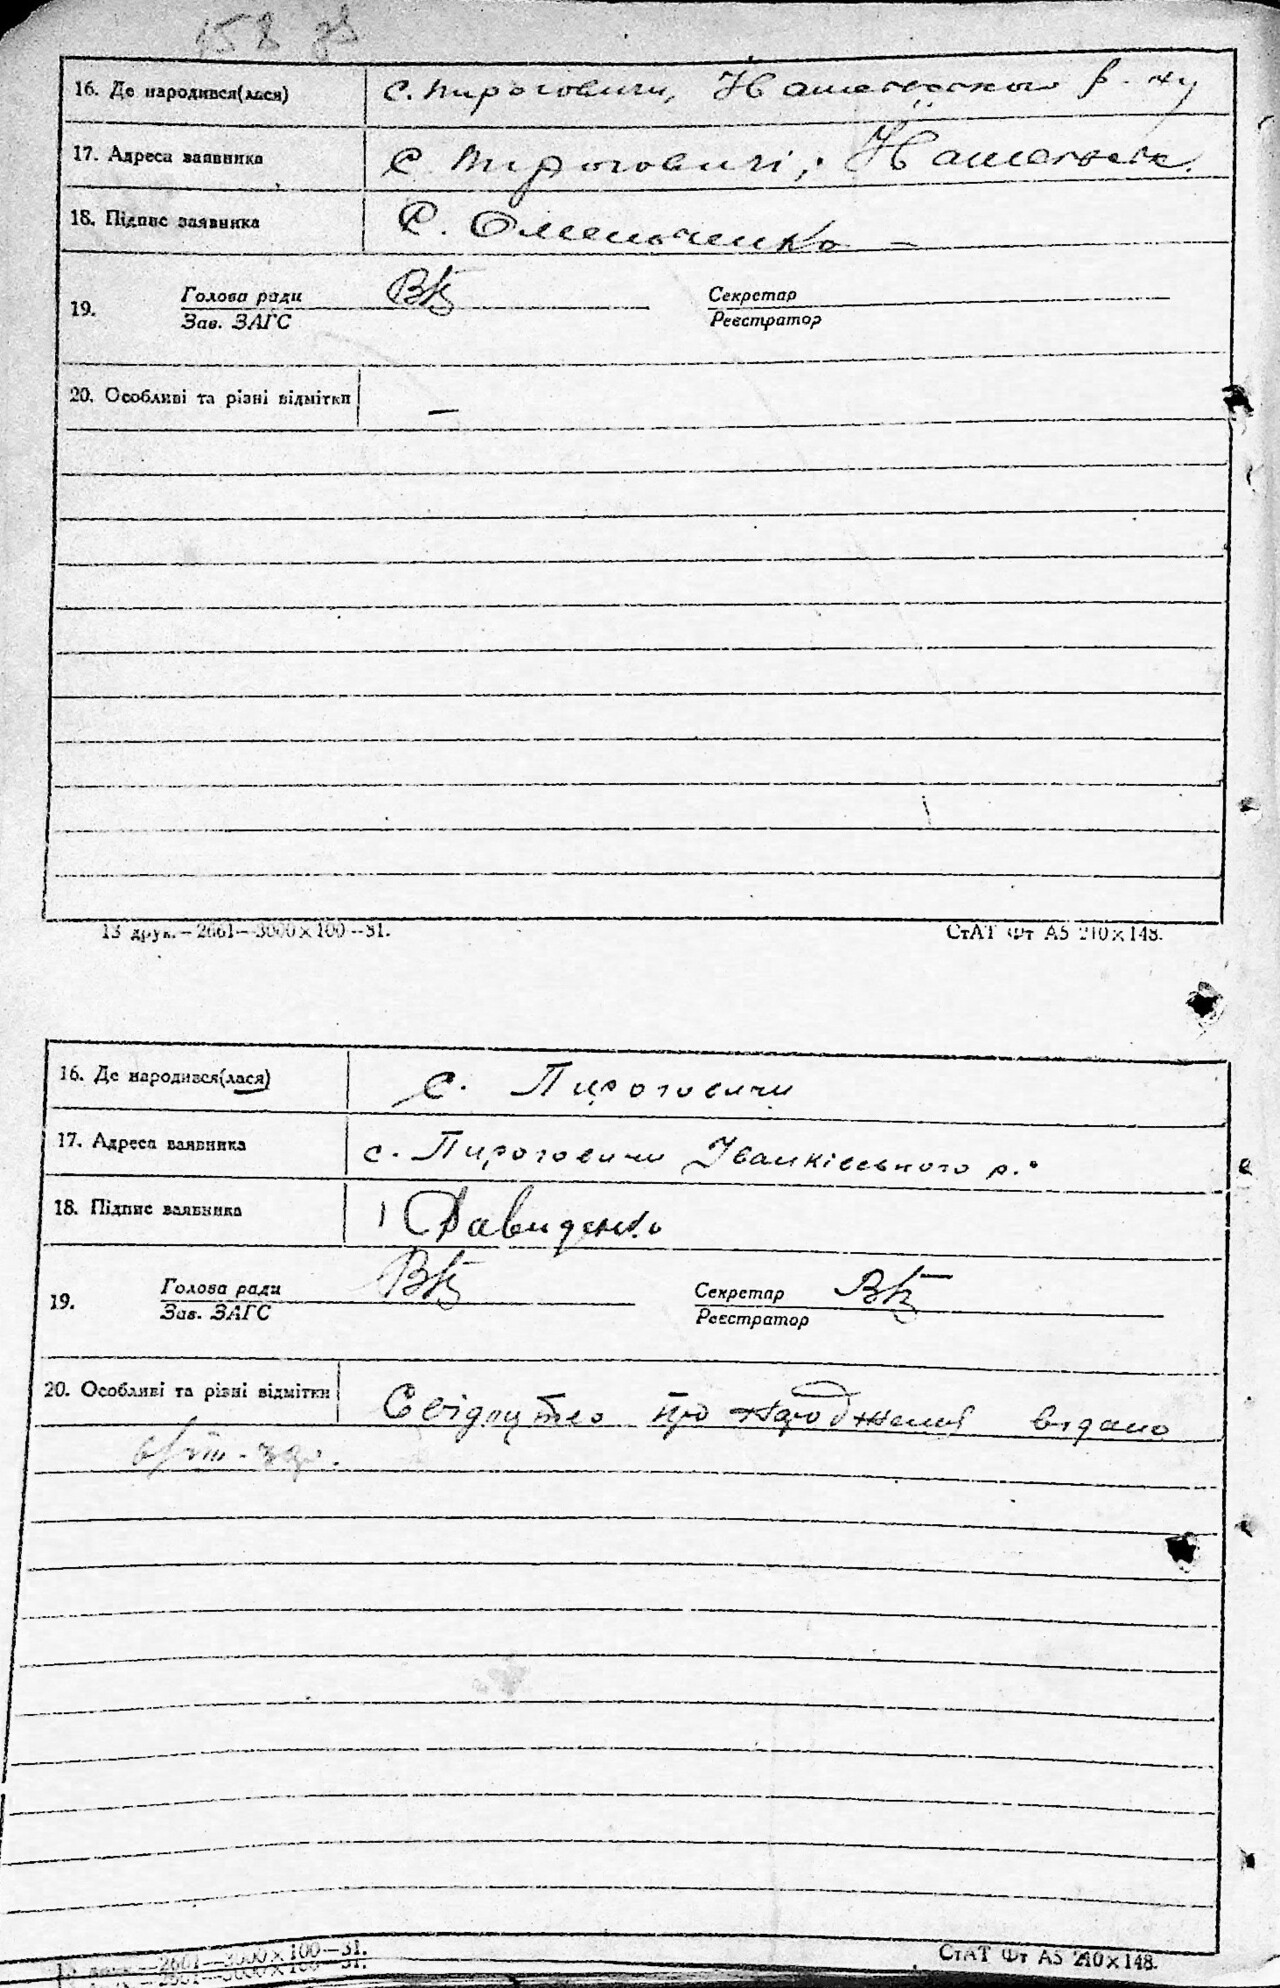 158 зв
16. Де народився(лася) с. Пироговичи, р-ну
17. Адреса заявника с Пироговичі,
18. Підпис заявника С. Омельченко —
Голова ради Секретар
19.
Зав. ЗАГС Реєстратор
20. Особливі та різні відмітки —
13 друк. – 2661 – 3000×100 – 31. СтАТ Фт А5 210×148.
16. Де народився(лася) с. Пироговичи
17. Адреса заявника с. Пироговичи Іванківського р.
18. Підпис заявника Давиденко
Голова ради Секретар
19.
Зав. ЗАГС Реєстратор
20. Особливі та різні відмітки Свідоцтво про народження видано
13 друк. – 2661 – 3000×100 – 31. СтАТ Фт А5 210×148.